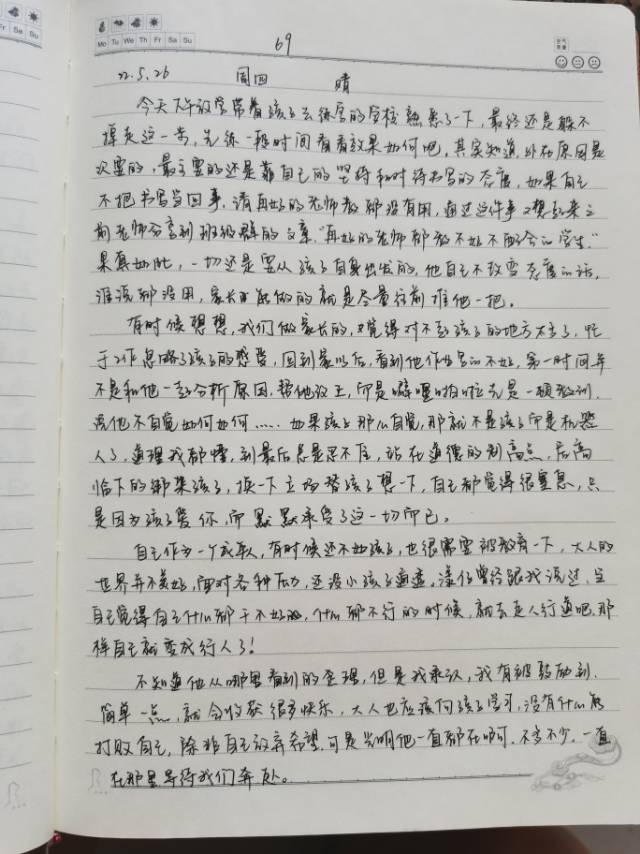 Fr Sa Su
Mo Tu We Th Fr Sa Su
69
22.5.26 周四 晴
今天下午放学带着孩子去练字的学校熟悉了一下，最终还是躲不
掉走这一步，先练一段时间看看效果如何吧，其实知道外在原因是
次要的，最主要的还是靠自己的坚持和对待书写的态度，如果自己
不把书写当回事，请再好的老师教都没有用，通过这件事又想起来之
前老师分享到班级群的文章，“再好的老师都教不好不配合的学生。”
果真如此，一切还是要从孩子自身出发的，他自己不改变态度的话，
谁说都没用，家长才能做的就是尽量往前推他一把。
有时候想想，我们做家长的，觉得对不起孩子的地方太多了，忙
于工作忽略了孩子的感受，回到家以后，看到他作业写的不好，第一时间并
不是和他一起分析原因，帮他改正，而是噼哩啪啦先是一顿教训，
说他不自觉如何如何……如果孩子那么自觉，那就不是孩子而是机器
人了，道理我都懂，到最后总是忍不住，站在道德的制高点，居高
临下的绑架孩子，换一下立场替孩子想一下，自己都觉得很窒息，只
是因为孩子爱你，而默默承受了这一切而已。
自己作为一个成年人，有时候还不如孩子，也很需要被教育一下，大人的
世界并不美好，面对各种压力，还没小孩子通透，曾经跟我说过，当
自己觉得自己什么都干不好，什么都不行的时候，就去走人行道吧，那
样自己就变成行人了！
不知道他从哪里看到的歪理，但是我承认，我有被鼓励到，
简单一点，就会收获很多快乐，大人也应该向孩子学习，没有什么能
打败自己，除非自己放弃希望，可是光明他一直都在啊，不多不少，一直
在那里等待我们奔赴。